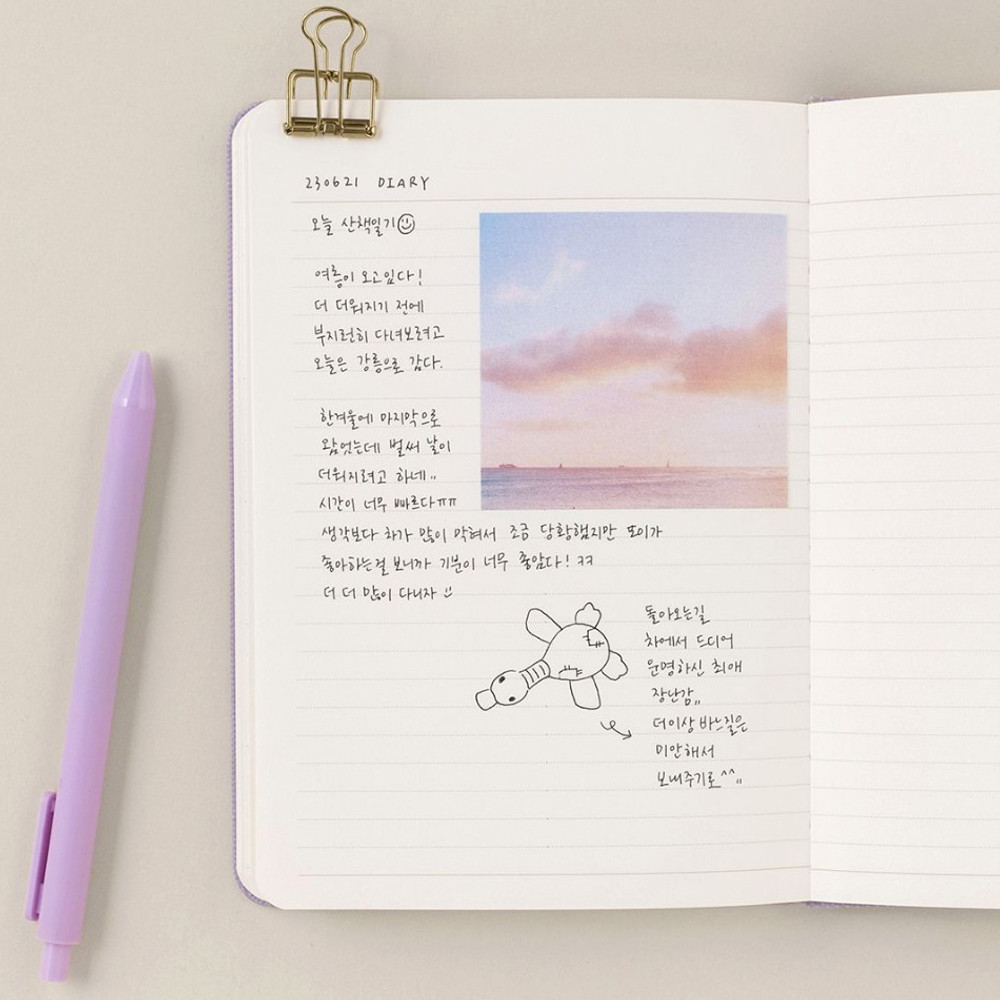 230621 DIARY
오늘 산책일기
여름이 오고있다!
더 더워지기 전에
부지런히 다녀보려고
오늘은 강릉으로 감다.
한겨울에 마지막으로
왔었는데 벌써 날이
더워지려고 하네..
시간이 너무 빠르다ㅠㅠ
생각보다 차가 많이 막혀서 조금 당황했지만 또이가
좋아하는걸 보니까 기분이 너무 좋았다! ㅋㅋ
더 더 많이 다니자
돌아오는길
차에서 드디어
운명하신 최애
장난감,,
더이상 바느질은
미안해서
보내주기로^^,,